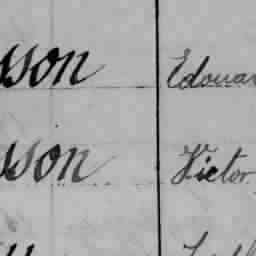 sson Edouar
sson Victor